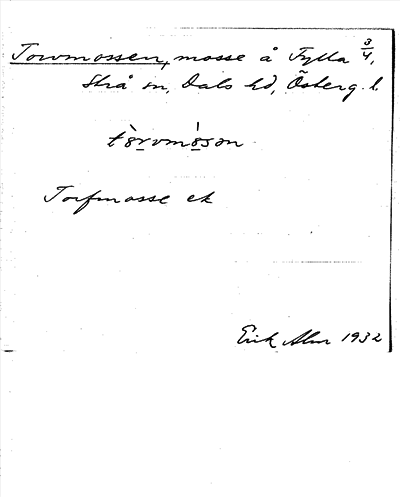 Torvmossen, mosse å Fylla 3/4,
Strå sn, Dals hd, Österg. l.
tòrvmòsən
Torfmosse ek
Erik Alm 1932